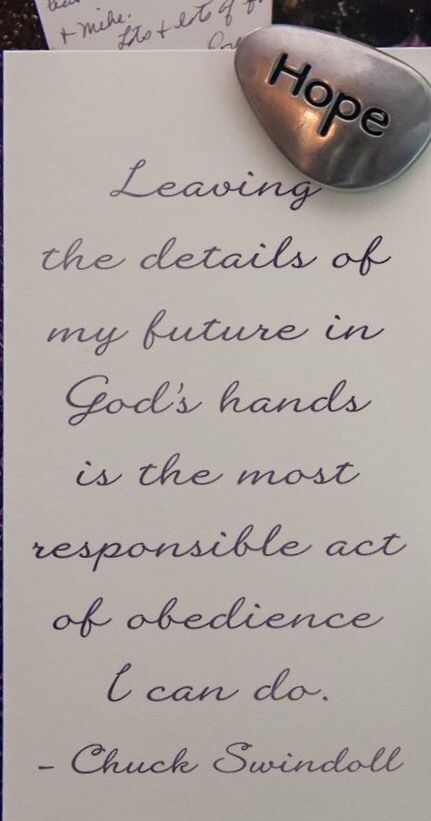 + Mike.
Lots + lots of
Hope
Leaving
the details of
my future in
God's hands
is the most
responsible act
of obedience
I can do.
- Chuck Swindoll